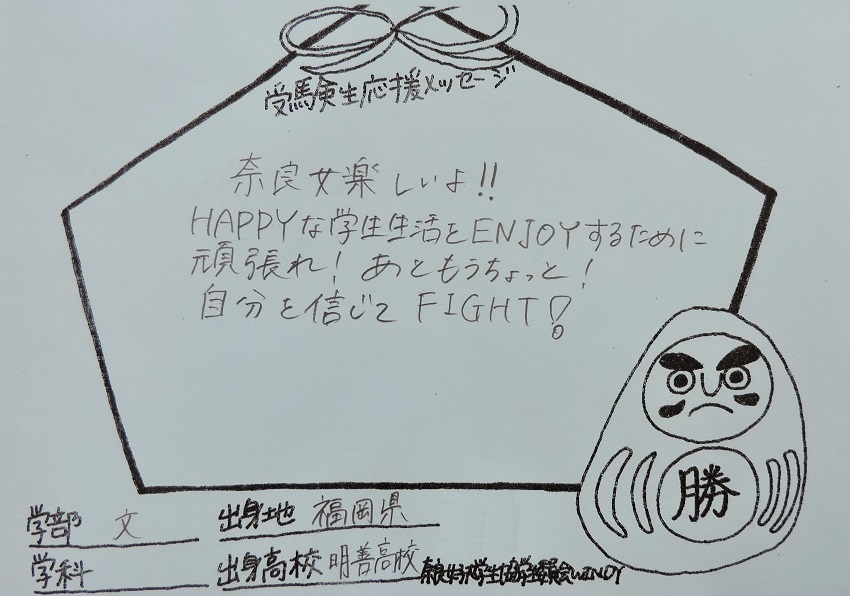 受験生応援メッセージ
奈良女楽しいよ!!
HAPPYな学生生活をENJOYするために
頑張れ! あともうちょっと!
自分を信じて FIGHT!
勝
学部 文 出身地 福岡県
学科 出身高校 明善高校
WENDY